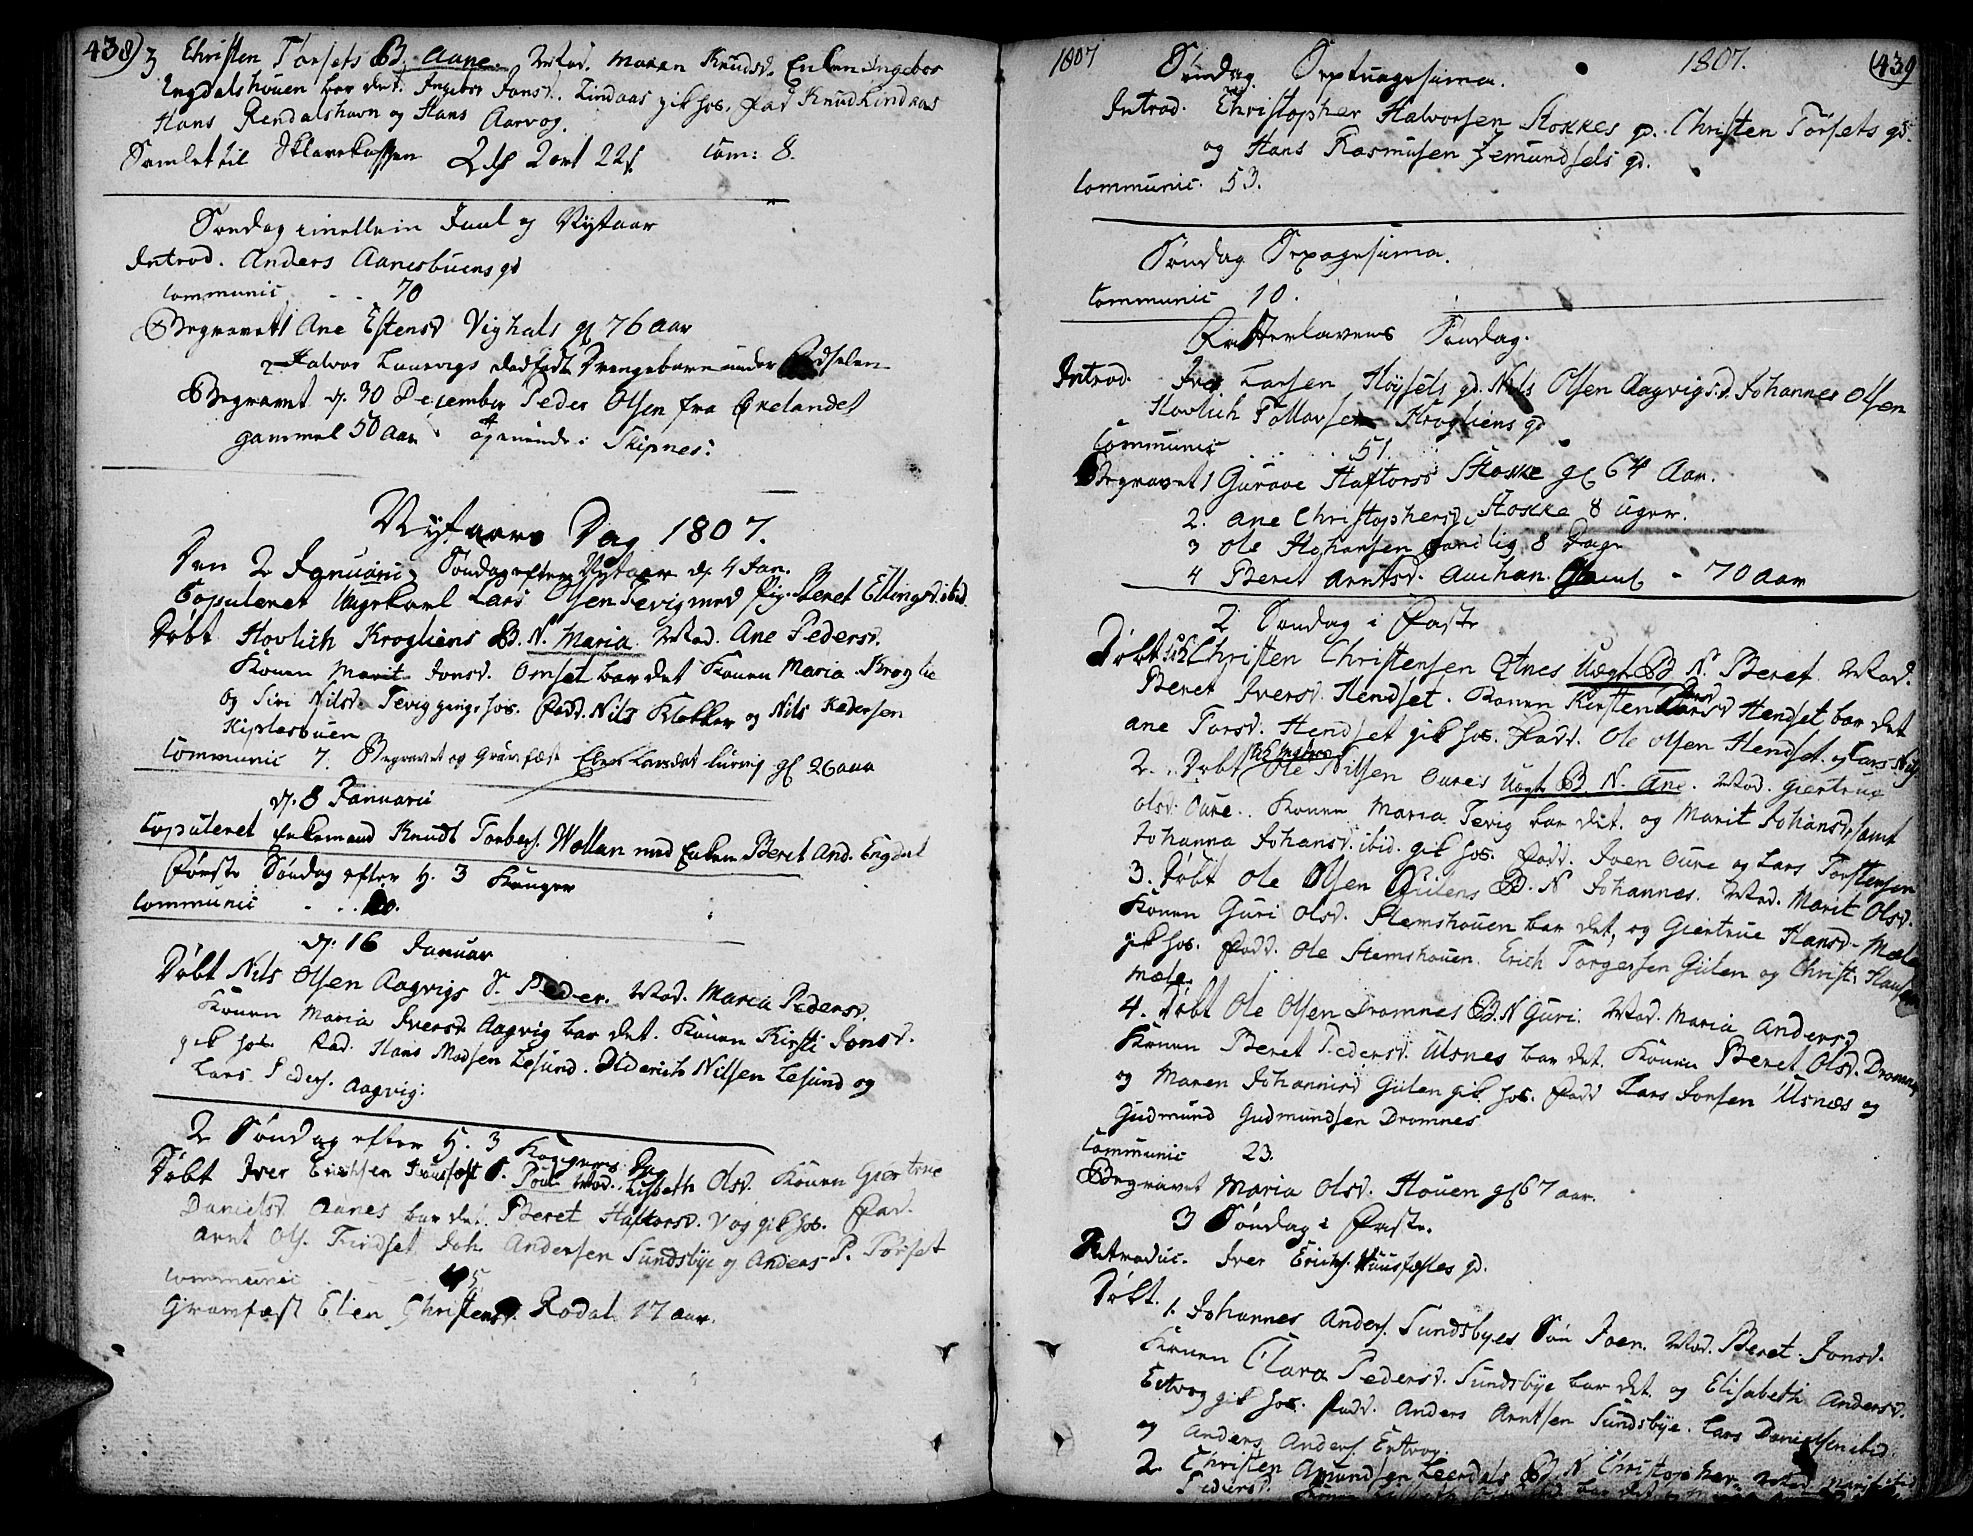 438)
3 Christen Torsets B. Aane. Mod. Maren Knudsd. Enken Ingebor
Engdalshouen bar det. Ingebor Jonsd. Lindaas gik hos. Fad Knud Lindaas
Hans Rendalshavn og Hans Aarvog.
Samlet til Sklavekassen 2 ds 2 ort 22 s. Com: 8.
Søndag imellem Juul og Nytaar
Introd. Anders Aanesbuens qd
Communic - - 70
Begravet 1 Ane Estensd Vighals gl 76 aar
2 Halvor Laurvigs dødfødt Drengebarn under Fødselen
Begravet d. 30 December Peder Olsen fra Ørelandet
gammel 50 Aar Skipnes:
Nytaars Dag 1807.
Den 2 Januarii Søndag efter Nytaar d. 4 Jan.
Copuleret Ungekarl Lars Olsen Tevig med Pig. Beret Ellingsd. ibid.
Døbt Hovlich Krogliens B. N. Maria. Mod. Ane Pedersd.
Konen Marit Jonsd. Omset bar det Konen Maria Kroglie
Og Siri Nilsd. Tevig ging hos. Fadd. Nils Klokker og Nils Pedersen
Kiplesbuen
Communic 7. Begravet og Gravfæst Elen Larsdat Lurvig gl 26 aar
d. 8 Januarii
Copuleret Enkemand Knudt Torbers. Wollan med Enken Beret And. Engdal
Første Søndag efter H. 3 Konger
Communic - - 20.
d. 16 Januar
Døbt Nils Olsen Aagvigs S. Peder. Mod. Maria Pedersd.
Konen Maria Iversd Aagvig bar det. Konen Kirsti Jonsd.
gik hos. Fad. Hans Madsen Lesund. Diderich Nilsen Lesund og
Lars Peders. Aagvig.
2 Søndag efter H. 3 Kongers Dag
Døbt Iver Erichsen Huusfæst S. Poul Mod. Lisbeth Olsd. Konen Giertrue
Danielsd Aanes bar det. Beret Haftorsd. Vog gik hos. Fad.
Arnt Ols. Tindset Joh. Andersen Sundsbye og Anders P. Torset
Communic - - 45
Gravfæst Elen Christensd. Rodal 17 aar.
1807 Søndag Septuagesima. 1807. (439
Introd. Christopher Halvorsen Stokkes qd. Christen Torsets qd.
og Hans Rasmusen Gemundsets qd.
Communic. 53.
Søndag Sexagesima.
Communic 10.
Fastelavens Søndag.
Introd. Iver Larsen Høysets qd. Nils Olsen Aagvigs qd. Johannes Olsen
Hovlich Tollavsen Krogliens qd
Communic - - 51.
Begravet 1 Guraae Haftorsd Stokke gl 64 Aar.
2. Ane Christophersd. Stokke 8 uger.
3 Ole Johansen 8 Dage
4 Beret Arntsd. Auchan. - 70 aar
2 Søndag i Faste
Døbt Christen Christensen Otnes Uægt B. N. Beret. Mod.
Beret Iversd. Hendset. Konen Kirsten Larsd Hendset bar det
Ane Torsd. Hendset gik hos. Fadd. Ole Olsen Hendset. og Lars
2. Døbt Ole Nilsen Oures Uægt B. N. Ane. Mod. Giertrue
Olsd. Oure. Konen Maria Tevig bar det. og Marit Johansd. samt
Johanna Johansd. ibid. gik hos. Fadd. Joen Oure og Lars Torstensen
3. Døbt Ole Olsen Gulens B. N Johannes. Mod. Marit Olsd.
Konen Guri Olsd. Stemshouen bar det, og Giertrue Hansd. Mæle
gik hos. Fadd. Ole Stemshouen. Erich Torgersen Gulen og Christ. Hans
Mæle.
4. Døbt Ole Olsen Dromnes B. N Guri. Mod. Maria Andersd
Konen Beret Pedersd. Ulsnes bar det. Konen Beret Olsd. Dromnes
og Maren Johannisd Gulen gik hos. Fadd Lars Jonsen Ulsnæs og
Gudmund Gudmundsen Dromnes
Communic 23.
Begravet Maria Olsd. Houen gl 67 aar.
3 Søndag i Faste.
Introduc. Iver Erichs. Huusfæstes qd.
Døbt.
1. Johannes Anders. Sundsbyes Søn Joen. Mod. Beret Jonsd.
Konen Clara Pedersd. Sundsbye bar det. og Elisabeth Andersd.
Ertvog gik hos. Fadd. Anders Arntsen Sundsbye. Lars Danielsen ibid.
og Anders Anders. Ertvog.
2 Christen Amundsen Leerdals B. N. Christopher. Mod. Marit
Pedersd.